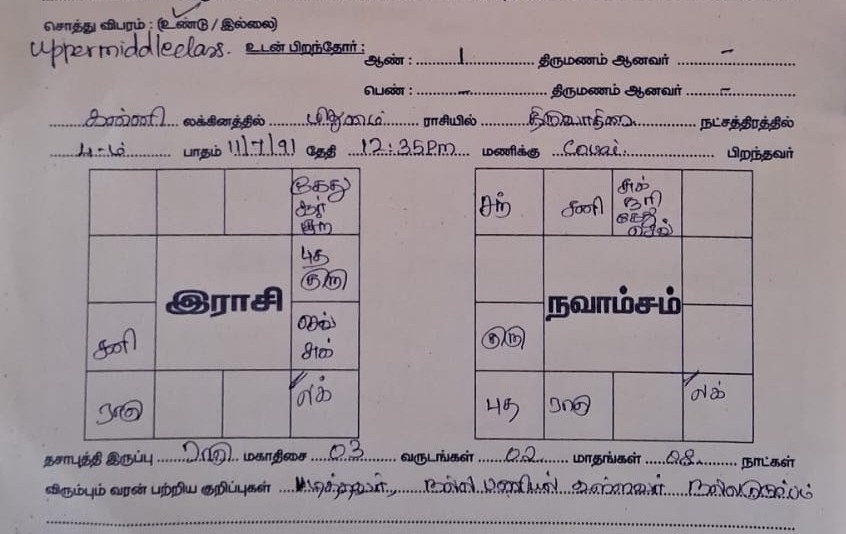 சொத்து விபரம் : (உண்டு / இல்லை)
Uppermiddleclass. உடன் பிறந்தோர் : ஆண் : 1 திருமணம் ஆனவர் -
பெண் : - திருமணம் ஆனவர் -
கன்னி லக்கினத்தில் மிதுனம் ராசியில் திருவாதிரை நட்சத்திரத்தில்
4-ம் பாதம் 11/7/91 தேதி 12:35Pm மணிக்கு Covai. பிறந்தவர்
கேது
சூர்
சந்
புத
குரு
இராசி
சனி
செவ்
சுக்
ராகு
லக்
சந்
சனி
சுக்
சூரி
கேது
செவ்
நவாம்சம்
குரு
புத
ராகு
லக்
தசாபுத்தி இருப்பு ராகு மகாதிசை 03 வருடங்கள் 02 மாதங்கள் 08 நாட்கள்
விரும்பும் வரன் பற்றிய குறிப்புகள் படித்தவர், நல்ல பணியில் உள்ளவர் நல்ல குடும்பம்